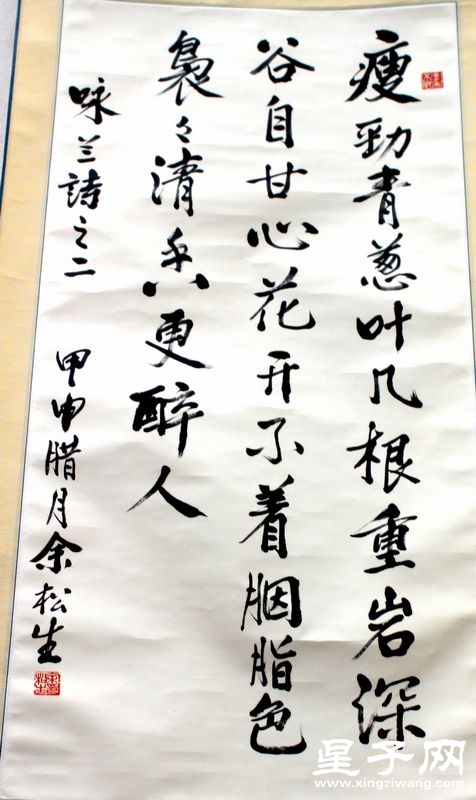 瘦勁青蔥叶几根重岩深
谷自甘心花开不着胭脂色
袅々清香更醉人
咏兰詩之二
甲申腊月余松生
星子网
www.xingziwang.com